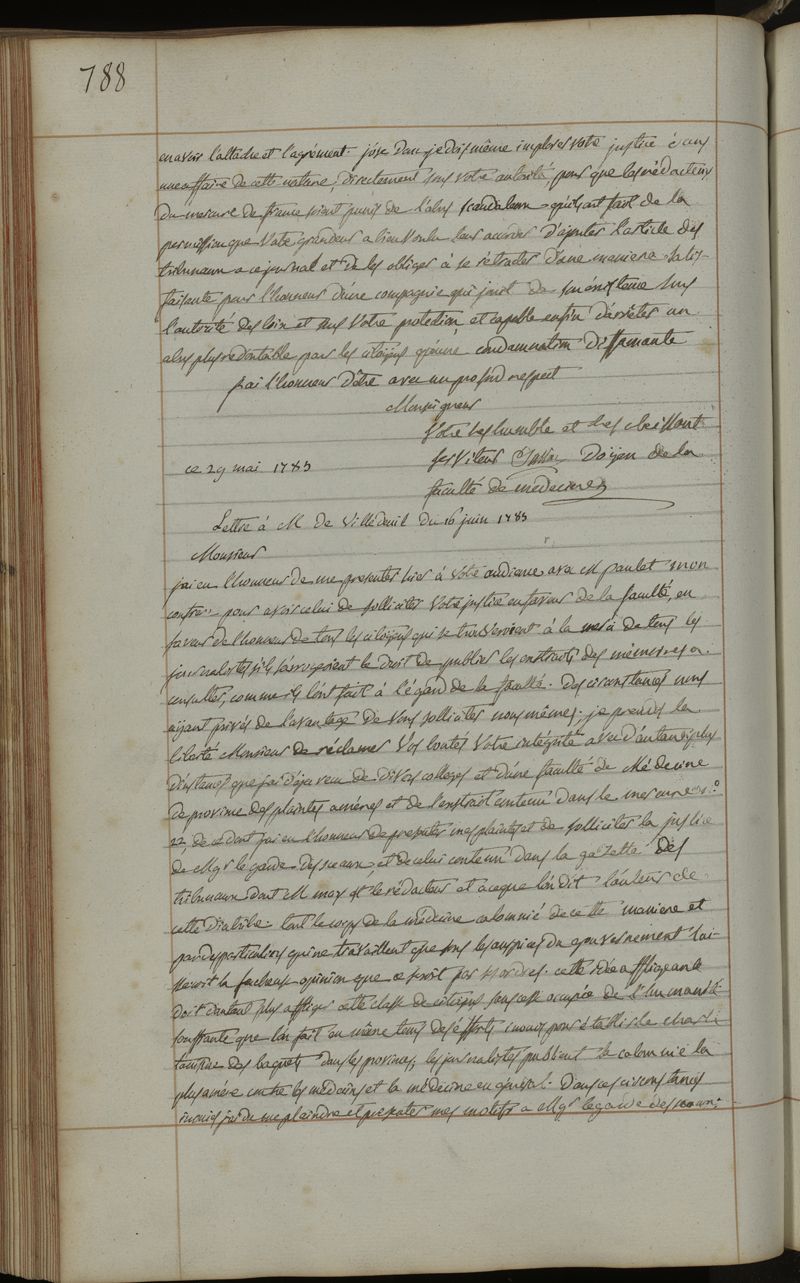 788
en avoir l'attache et l'agrément. j'ose dire je dois même implorer votre justice dans
une affaire de cette nature, directement sous votre autorité pour que les rédacteurs
du mercure de france soient punis de l'abus scandaleux qu'ils ont fait de la
permission que Votre grandeur a bien voulu leur accorder d'ajouter l'article des
tribunaux a ce journal et de les obliger à se rétracter d'une maniere satis-
faisante pour l'honneur d'une compagnie qui jouit de son existence sous
l'autorité des loix et sous Votre protection, et capable enfin d'arrêter un
abus plus redoutable pour les citoyens qu'une condamnation diffamante
j'ai l'honneur d'être avec un profond respect
Monseigneur
Votre tres humble et tres obeissant
ce 29 mai 1785 serviteur Doÿen de la
faculté de medecine
Lettre à M de Villedeuil du 16 juin 1785
Monsieur
j'ai eu l'honneur de me presenter hier à votre audience avec M paulet mon
confrere pour avoir celui de solliciter Votre justice en faveur de la faculté, en
faveur de l'honneur de tous les citoyens qui se trouveroient à la merci de tous les
journalistes s'ils s'arrogeoient le droit de publier les extraits des mémoires a
consulter, comme ils l'ont fait à l'égard de la faculté. Des circonstances nous
aÿant privés de l'avantage de vous solliciter nous mêmes, je prends la
liberté Monsieur de réclamer Vos bontés Votre intégrité avec d'autant plus
d'instances que j'ai déja reçu de divers colleges et d'une faculté de Médecine
de province des plaintes amères et de l'extrait contenu dans le mercure n.°
22, de ce dont j'ai eu l'honneur de presenter mes plaintes et de solliciter la justice
de Mgr le garde des sceaux, et de celui contenu dans la gazette des
tribunaux dont M mars est le rédacteur et a ce que l'on dit l'auteur de
cette diatribe. tout le corps de la medecine calomnié de cette maniere et
par des particuliers qui ne travaillent que sous les auspices du gouvernement lai-
sseroit la facheuse opinion que ce seroit par ses ordres. cette idée affligeante
doit d'autant plus affliger cette classe de citoyens sans cesse occupée de l'humanité
souffrante que l'on fait en même tems des efforts inouis pour établir le charla-
tanisme des baquets dans les provinces, les journalistes publient la calomnie la
plus amére contre les medecins et la medecine en général. Dans ces circonstances
inouies j'ai du me plaindre et presenter mes motifs a Mgr le garde des sceaux: